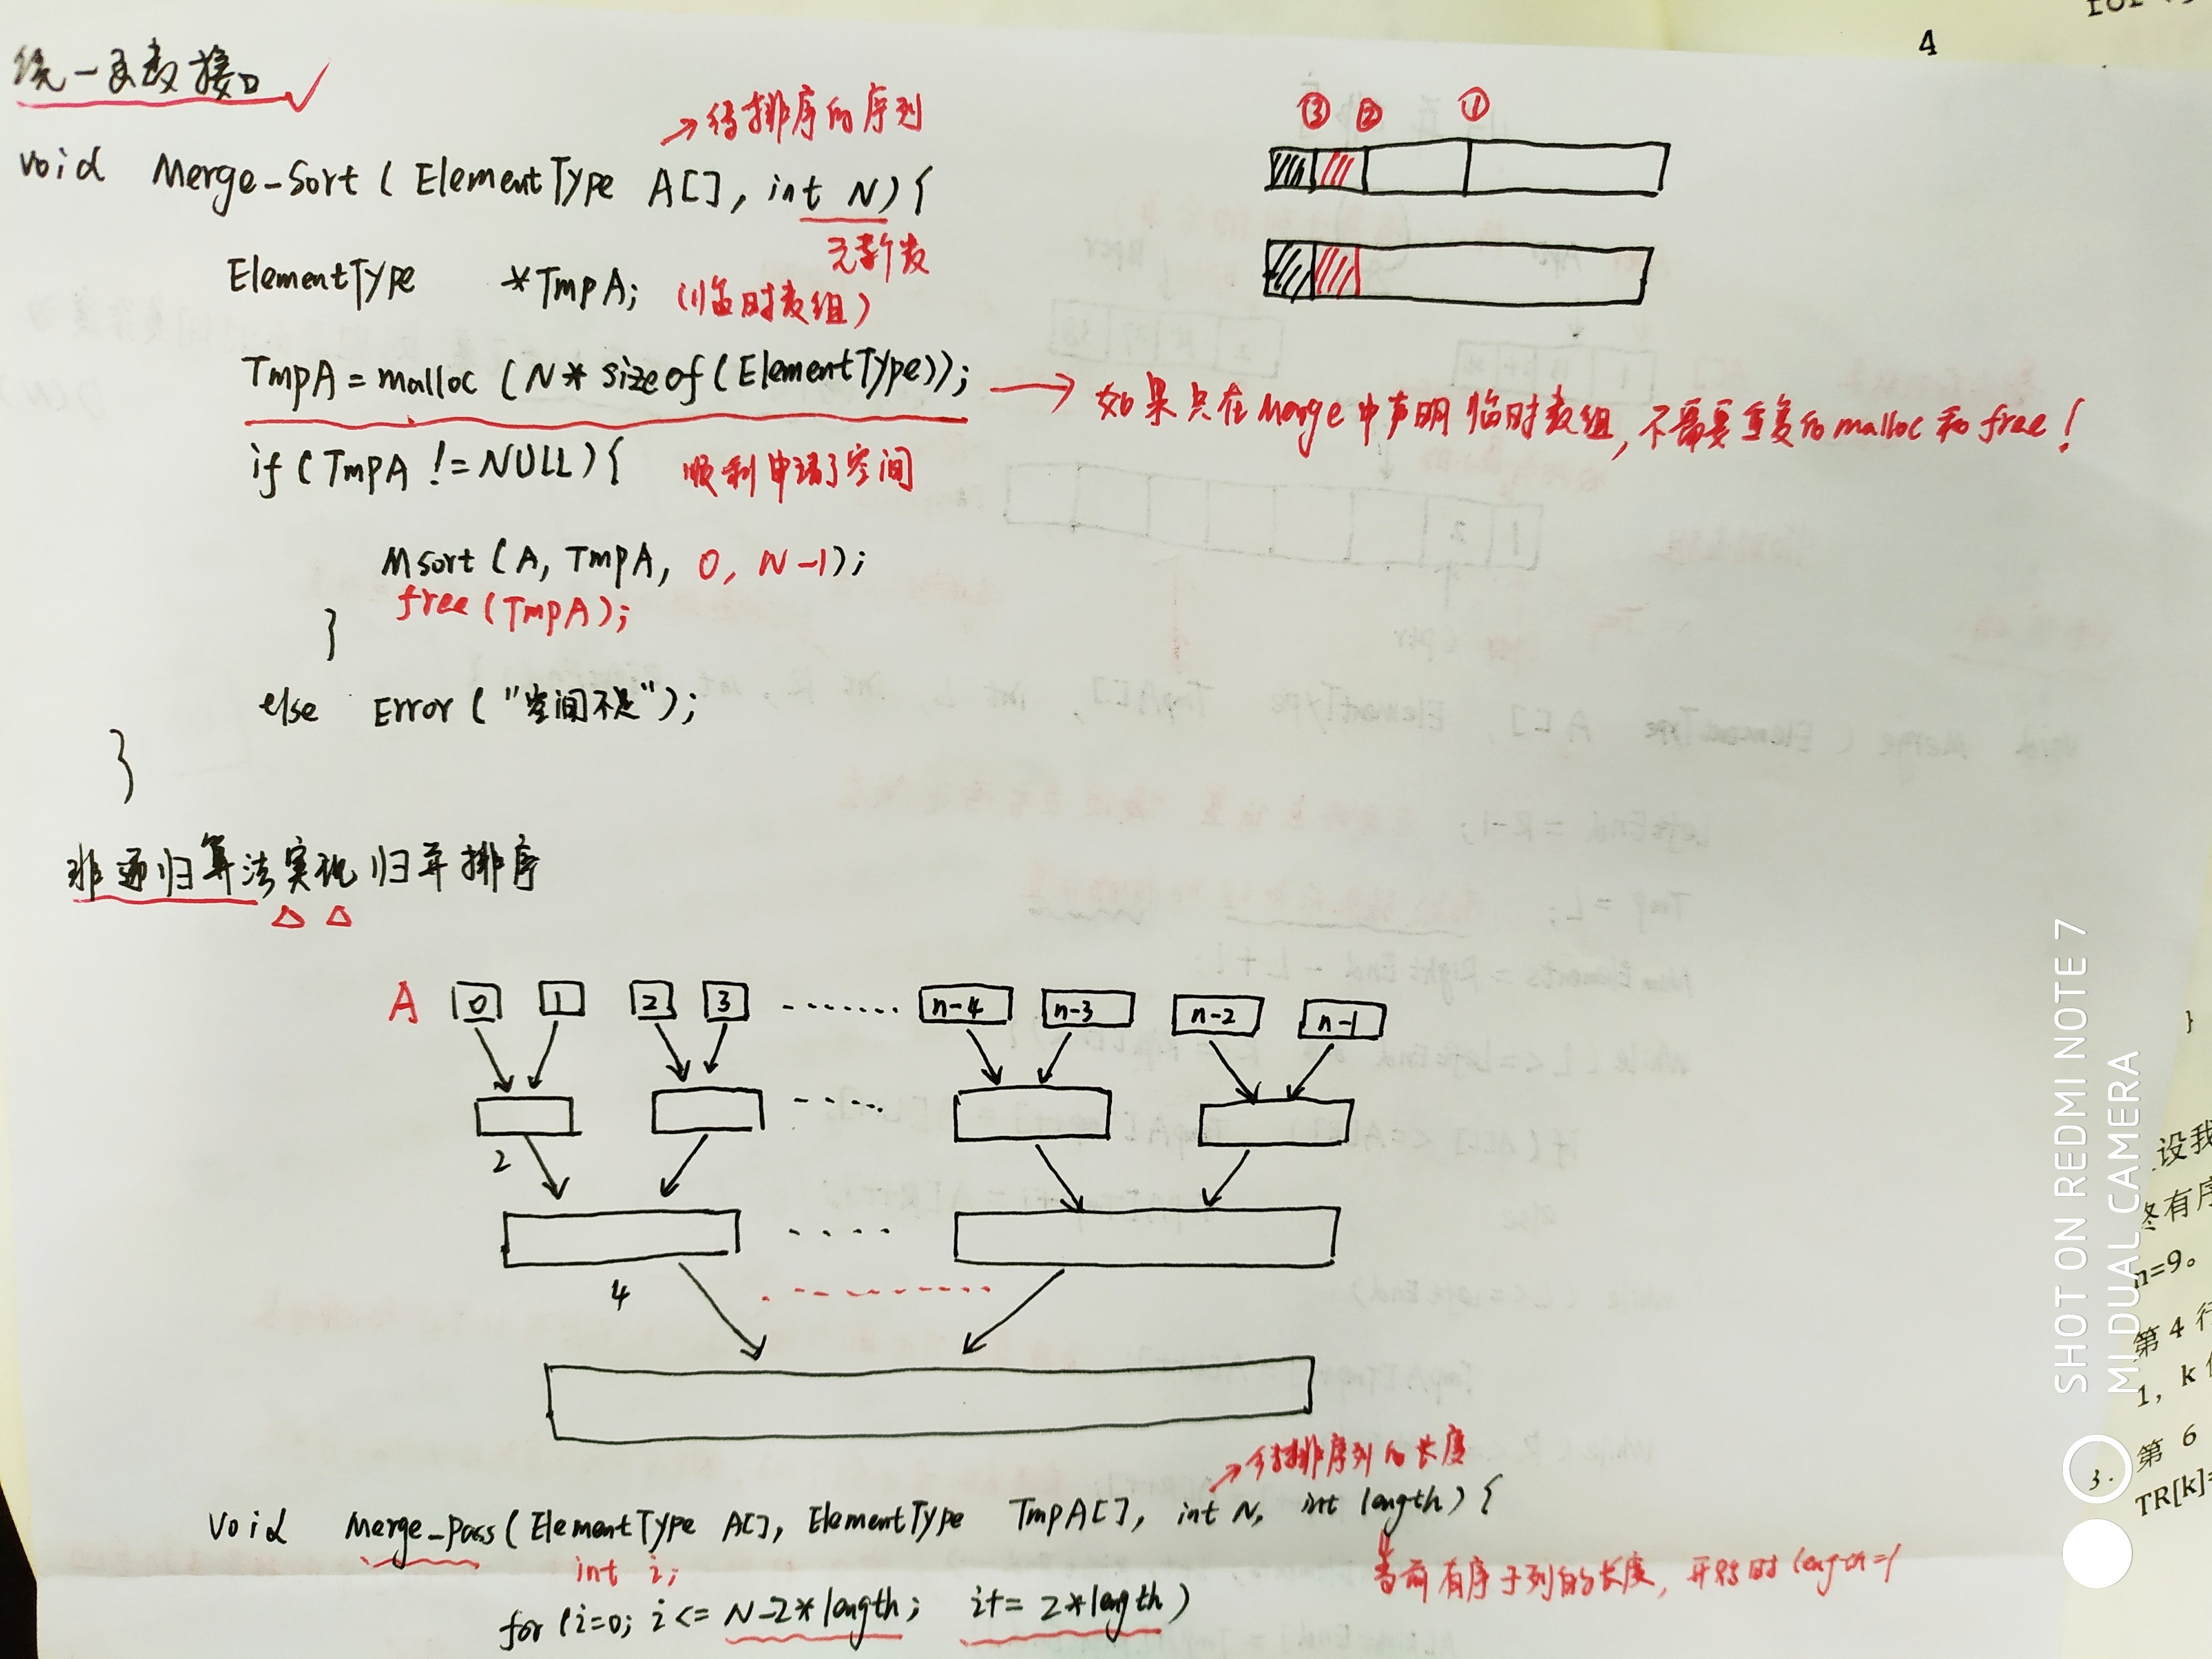 4
统一函数接口
→待排序的序列
③ ② ①
void Merge-Sort ( ElementType A[], int N) {
元素个数
ElementType *TmpA; (临时数组)
TmpA = malloc (N* sizeof(ElementType)); → 如果只在Merge中声明临时数组,不需要重复的malloc和free!
if (TmpA != NULL) { 顺利申请了空间
Msort (A, TmpA, 0, N-1);
free (TmpA);
}
else Error ("空间不足");
}
非递归算法实现归并排序
A 0 1 2 3 ....... n-4 n-3 n-2 n-1
2
4
→待排序列的长度
void Merge-Pass ( ElementType A[], ElementType TmpA[], int N, int length) {
当前有序子列的长度, 开始时length=1
int i;
for (i=0; i <= N-2*length; i+= 2*length)
设我
终有序
n=9。
第 4 行
1, k
3. 第 6
TR[k]=
SHOT ON REDMI NOTE 7
MI DUAL CAMERA